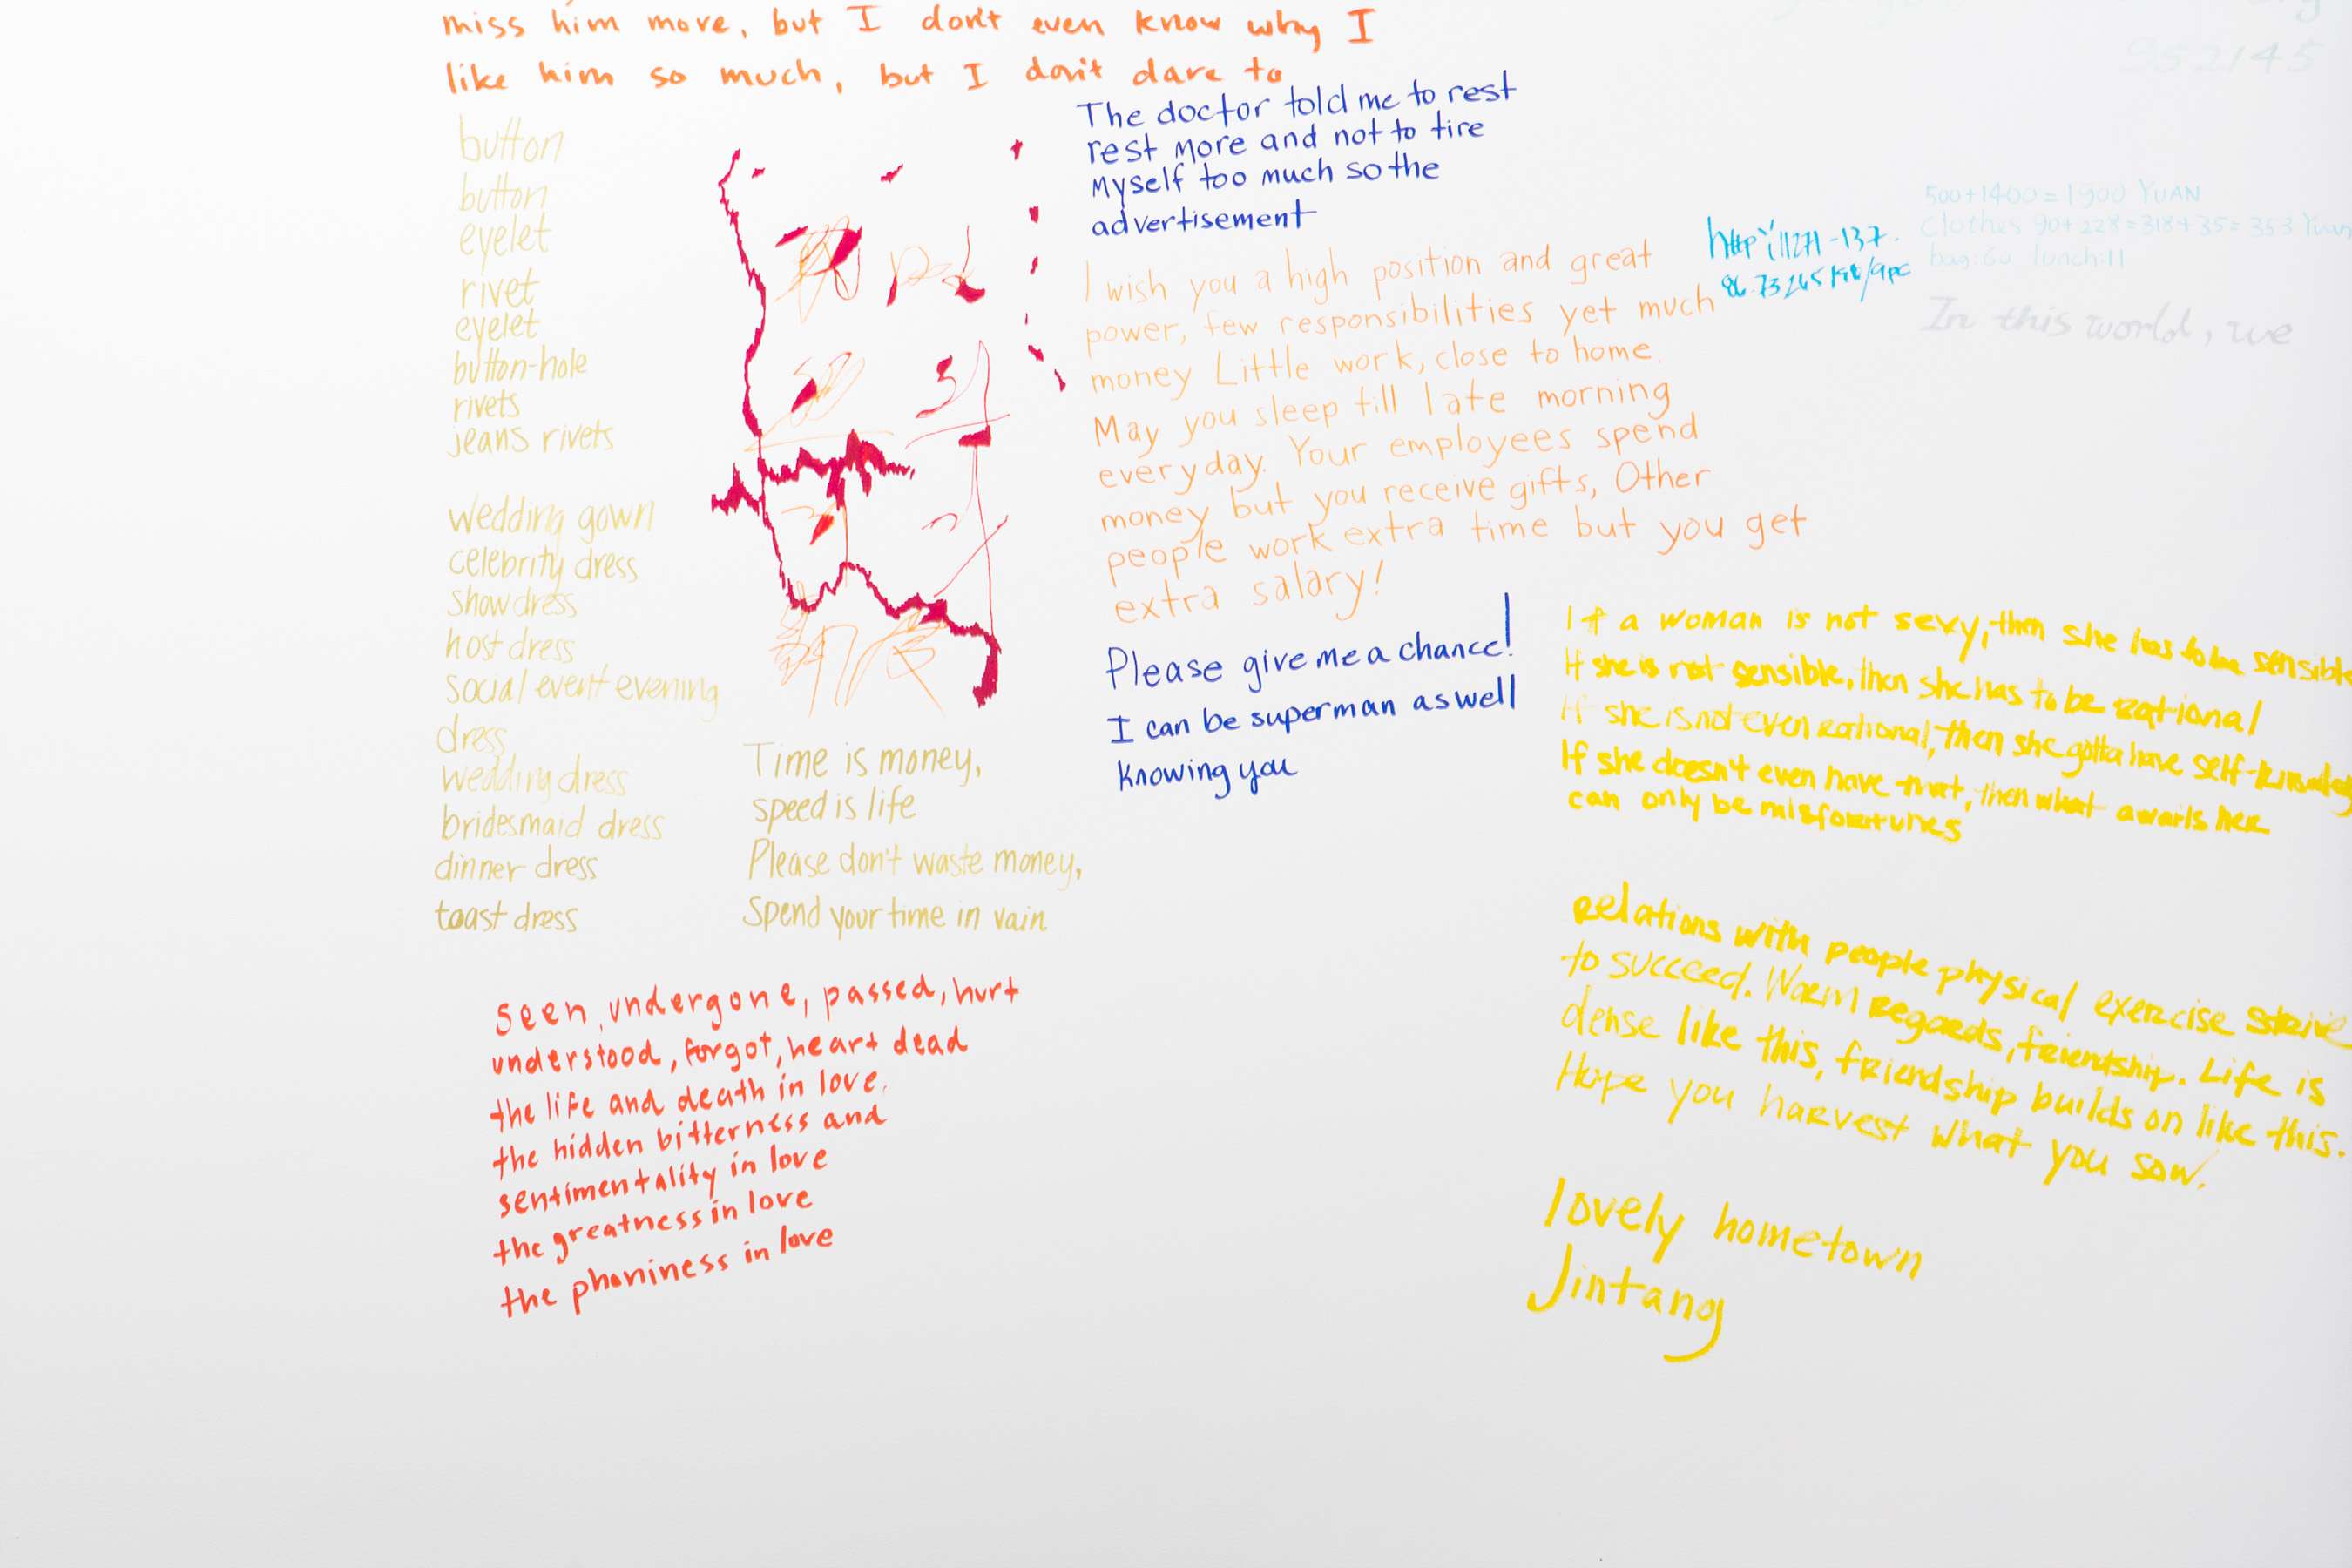 miss him more, but I don't even know why I
like him so much, but I don't dare to
button
button
eyelet
rivet
eyelet
button-hole
rivets
jeans rivets
wedding gown
celebrity dress
show dress
host dress
social event evening
dress
wedding dress
bridesmaid dress
dinner dress
toast dress
Time is money,
speed is life
Please don't waste money,
Spend your time in vain
seen, undergone, passed, hurt
understood, forgot, heart dead
the life and death in love,
the hidden bitterness and
sentimentality in love
the greatness in love
the phoniness in love
The doctor told me to rest
rest more and not to tire
myself too much so the
advertisement
I wish you a high position and great
power, few responsibilities yet much
money Little work, close to home.
May you sleep till late morning
everyday. Your employees spend
money but you receive gifts, Other
people work extra time but you get
extra salary!
Please give me a chance!
I can be superman as well
knowing you
952145
500+1400=1900 YUAN
Clothes 90+228=318+35=353 Yuan
bag:60 lunch:11
In this world, we
If a woman is not sexy, then she has to be sensible
If she is not sensible, then she has to be rational
If she is not even rational, then she gotta have
If she doesn't even have that, then what awaits her
can only be misfortunes
Relations with people physical exercise
to succeed. Warm Regards, friendship. Life is
dense like this, friendship builds on like this.
Hope you harvest what you sow.
lovely hometown
Jintang